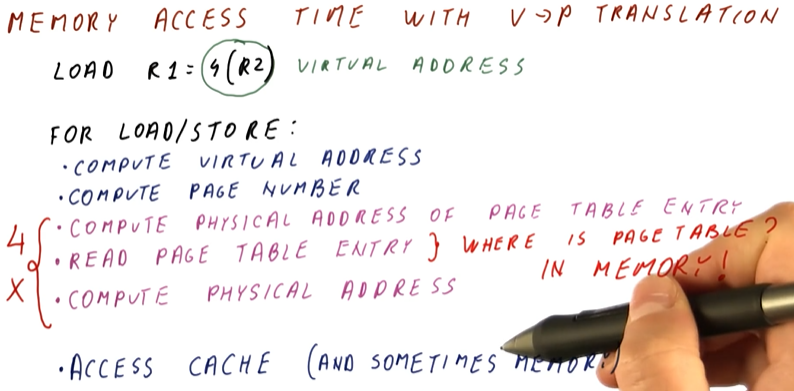 MEMORY ACCESS TIME WITH V→P TRANSLATION
LOAD R1 = 4(R2) VIRTUAL ADDRESS
FOR LOAD/STORE:
• COMPUTE VIRTUAL ADDRESS
• COMPUTE PAGE NUMBER
• COMPUTE PHYSICAL ADDRESS OF PAGE TABLE ENTRY
• READ PAGE TABLE ENTRY } WHERE IS PAGE TABLE?
IN MEMORY!
4X
• COMPUTE PHYSICAL ADDRESS
• ACCESS CACHE (AND SOMETIMES MEMORY)